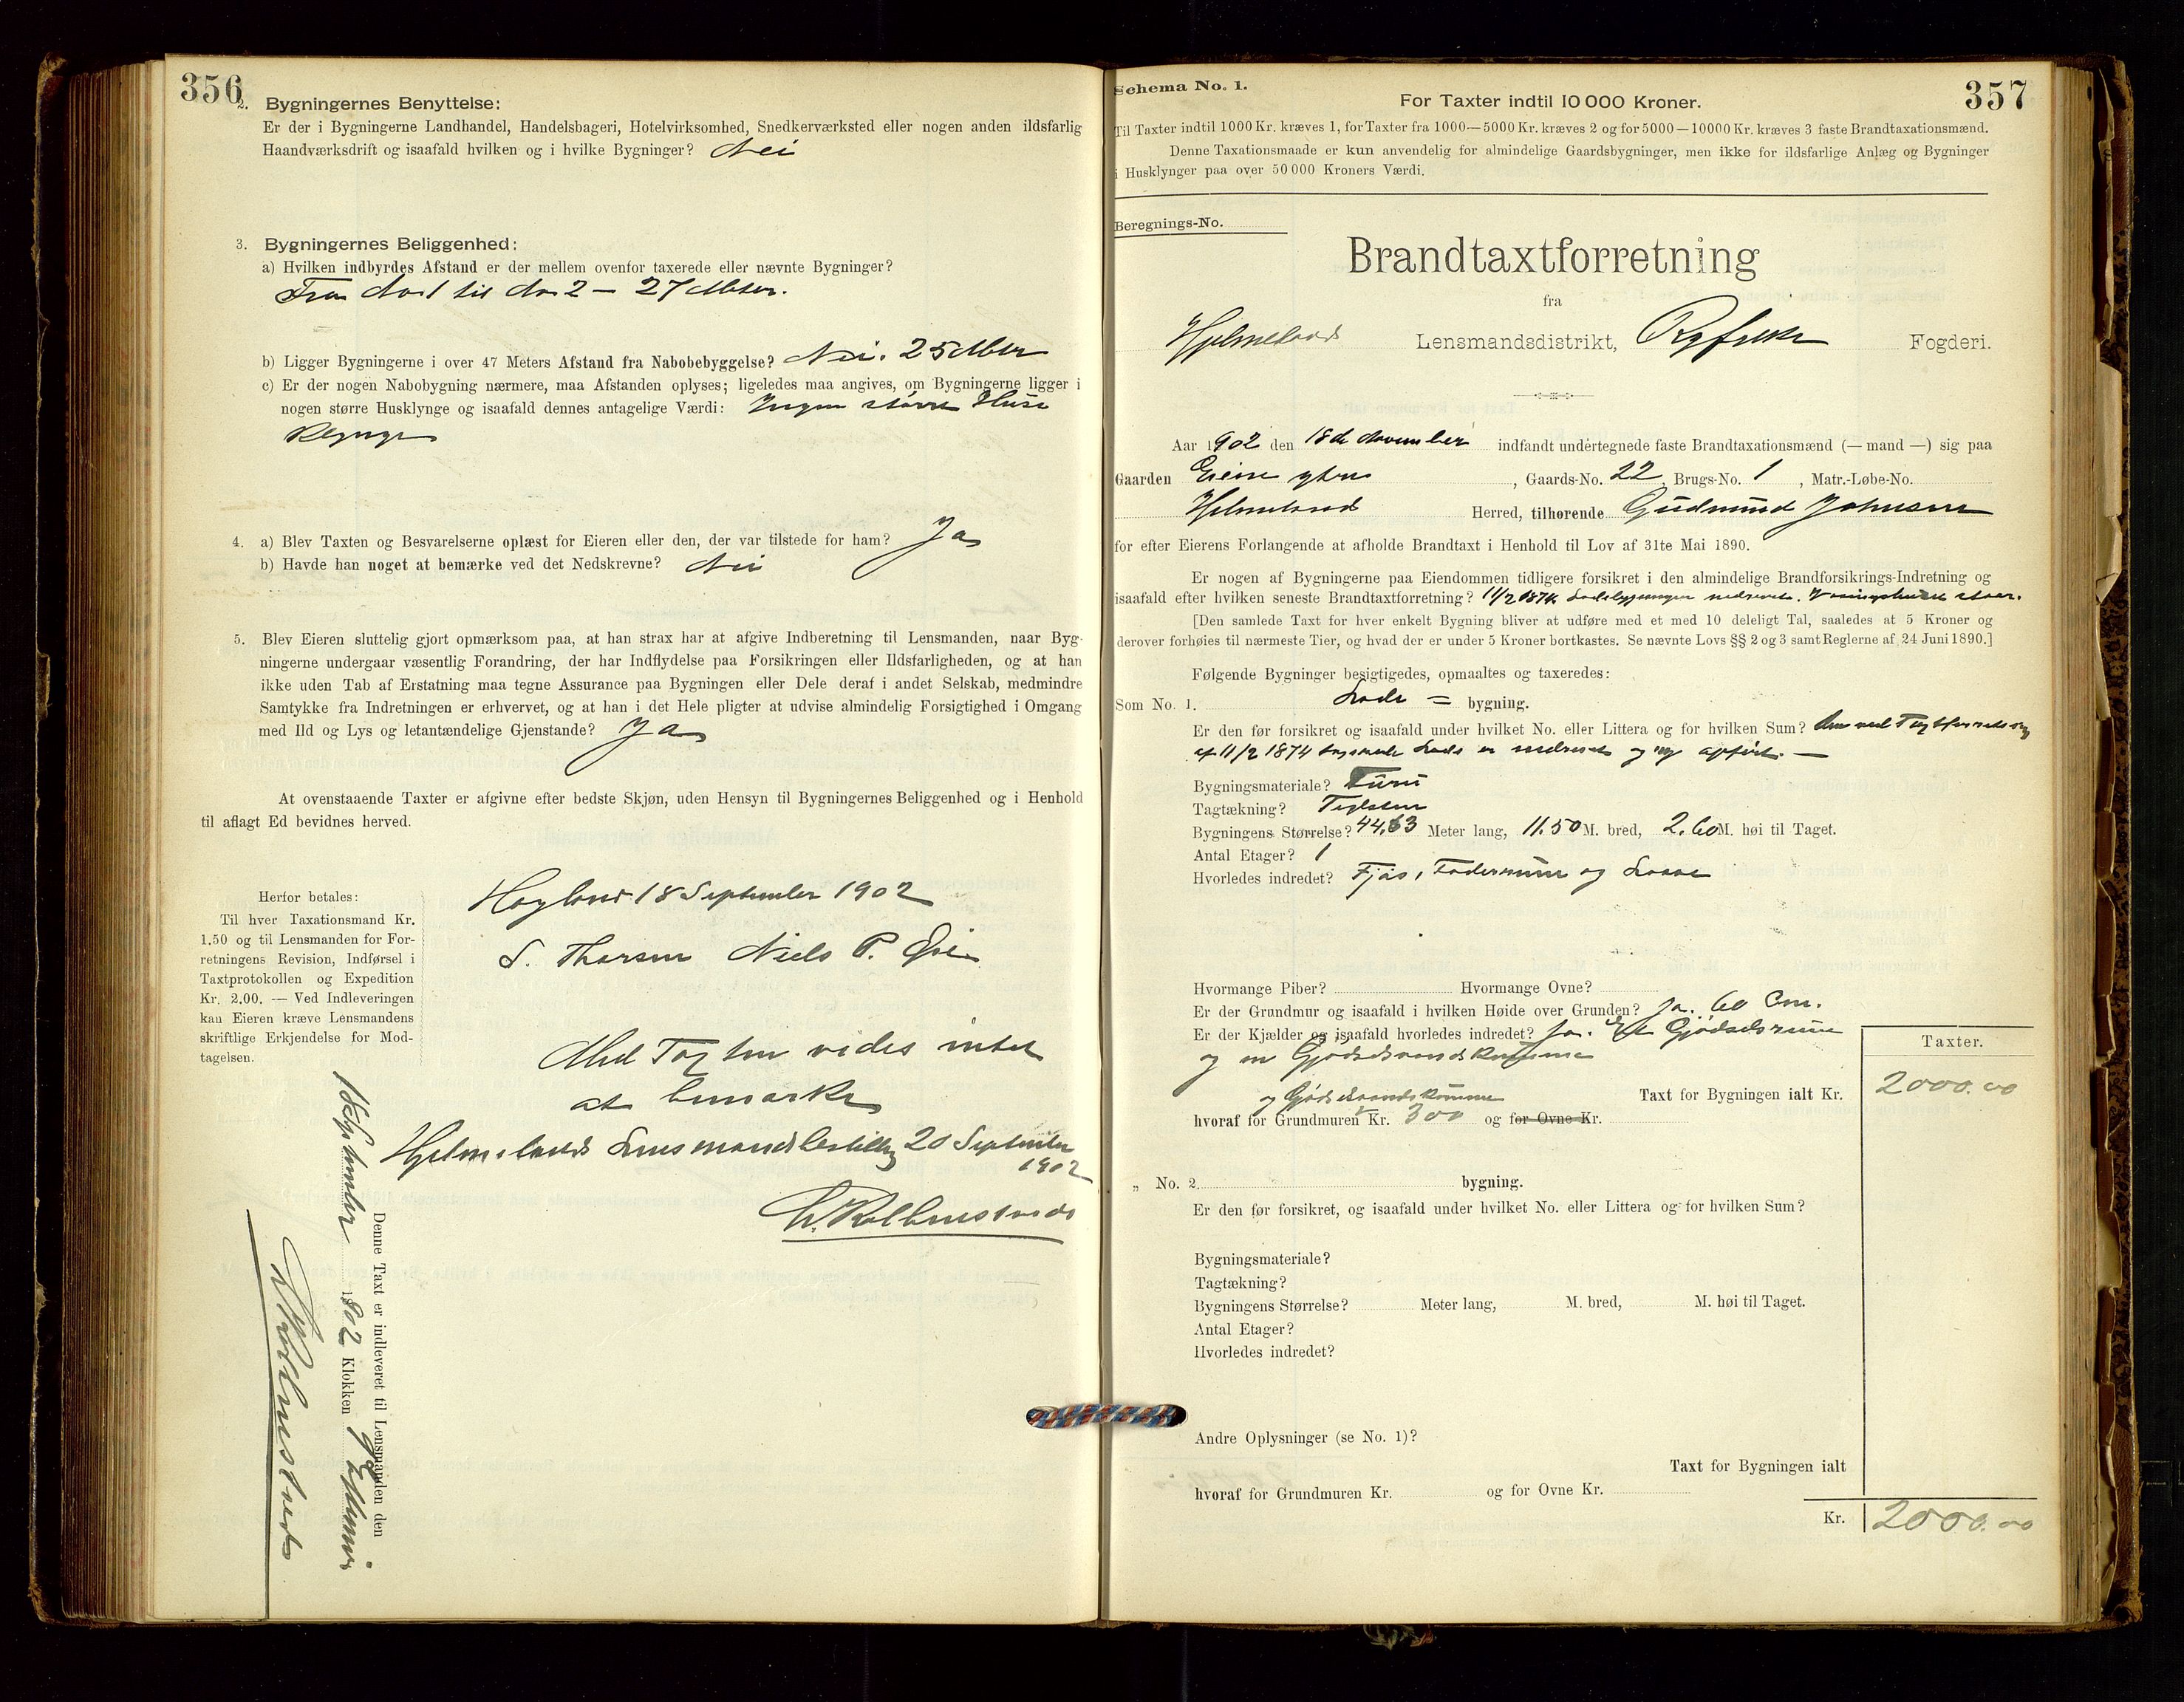 356
2. Bygningernes Benyttelse:
Er der i Bygningerne Landhandel, Handelsbageri, Hotelvirksomhed, Snedkerværksted eller nogen anden ildsfarlig
Haandværksdrift og isaafald hvilken og i hvilke Bygninger? Nei
3. Bygningernes Beliggenhed:
a) Hvilken indbyrdes Afstand er der mellem ovenfor taxerede eller nævnte Bygninger?
Fra No 1 til No 2 — 27 Meter.
b) Ligger Bygningerne i over 47 Meters Afstand fra Nabobebyggelse? Nei. 25 Meter
c) Er der nogen Nabobygning nærmere, maa Afstanden oplyses; ligeledes maa angives, om Bygningerne ligger i
nogen større Husklynge og isaafald dennes antagelige Værdi: Ingen større Huse
Klynge
4. a) Blev Taxten og Besvarelserne oplæst for Eieren eller den, der var tilstede for ham? Ja
b) Havde han noget at bemærke ved det Nedskrevne? Nei
5. Blev Eieren sluttelig gjort opmærksom paa, at han strax har at afgive Indberetning til Lensmanden, naar Byg-
ningerne undergaar væsentlig Forandring, der har Indflydelse paa Forsikringen eller Ildsfarligheden, og at han
ikke uden Tab af Erstatning maa tegne Assurance paa Bygningen eller Dele deraf i andet Selskab, medmindre
Samtykke fra Indretningen er erhvervet, og at han i det Hele pligter at udvise almindelig Forsigtighed i Omgang
med Ild og Lys og letantændelige Gjenstande? Ja
At ovenstaaende Taxter er afgivne efter bedste Skjøn, uden Hensyn til Bygningernes Beliggenhed og i Henhold
til aflagt Ed bevidnes herved.
Herfor betales:
Til hver Taxationsmand Kr.
1.50 og til Lensmanden for For-
retningens Revision, Indførsel i
Taxtprotokollen og Expedition
Kr. 2.00. — Ved Indleveringen
kan Eieren kræve Lensmandens
skriftlige Erkjendelse for Mod-
tagelsen.
Høyland 18 September 1902
S. Thorsen Niels P.
Med Taxten vides intet
at bemærke
Hjelmelands Lensmandsbestilling 20 September
1902
Denne Taxt er indleveret til Lensmanden den
18 September 1902 Klokken 9 Efterm
Schema No. 1.
For Taxter indtil 10 000 Kroner.
357
Til Taxter indtil 1000 Kr. kræves 1, for Taxter fra 1000—5000 Kr. kræves 2 og for 5000—10000 Kr. kræves 3 faste Brandtaxationsmænd.
Denne Taxationsmaade er kun anvendelig for almindelige Gaardsbygninger, men ikke for ildsfarlige Anlæg og Bygninger
i Husklynger paa over 50 000 Kroners Værdi.
Beregnings-No.
Brandtaxtforretning
fra
Hjelmelands Lensmandsdistrikt, Ryfylke Fogderi.
Aar 1902 den 18de November indfandt undertegnede faste Brandtaxationsmænd (— mand —) sig paa
Gaarden ytre, Gaards-No. 22, Brugs-No. 1, Matr.-Løbe-No.
Hjelmeland Herred, tilhørende Gudmund Johnsen
for efter Eierens Forlangende at afholde Brandtaxt i Henhold til Lov af 31te Mai 1890.
Er nogen af Bygningerne paa Eiendommen tidligere forsikret i den almindelige Brandforsikrings-Indretning og
isaafald efter hvilken seneste Brandtaxtforretning? 11/2 1874. Ladebygningen nedrevet. Vaaningshuset staar.
[Den samlede Taxt for hver enkelt Bygning bliver at udføre med et med 10 deleligt Tal, saaledes at 5 Kroner og
derover forhøies til nærmeste Tier, og hvad der er under 5 Kroner bortkastes. Se nævnte Lovs §§ 2 og 3 samt Reglerne af 24 Juni 1890.]
Følgende Bygninger besigtigedes, opmaaltes og taxeredes:
Som No. 1. Lade = bygning.
Er den før forsikret og isaafald under hvilket No. eller Littera og for hvilken Sum? Den ved Taxtforretning
af 11/2 1874 Lade er nedrevet og ny opført. —
Bygningsmateriale? Furu
Tagtækning? Teglsten
Bygningens Størrelse? 44,63 Meter lang, 11.50 M. bred, 2.60 M. høi til Taget.
Antal Etager? 1
Hvorledes indredet? Fjøs, Foderrum og Laave
Hvormange Piber? Hvormange Ovne?
Er der Grundmur og isaafald i hvilken Høide over Grunden? Ja. 60 Cm.
Er der Kjælder og isaafald hvorledes indredet? Ja. Et Gjødselsrum
og en Gjødselvandskumme
Taxter.
og Gjødselvandskumme Taxt for Bygningen ialt Kr. 2000.00
hvoraf for Grundmuren Kr. 300 og for Ovne Kr.
„ No. 2. bygning.
Er den før forsikret, og isaafald under hvilket No. eller Littera og for hvilken Sum?
Bygningsmateriale?
Tagtækning?
Bygningens Størrelse? Meter lang, M. bred, M. høi til Taget.
Antal Etager?
Hvorledes indredet?
Andre Oplysninger (se No. 1)?
Taxt for Bygningen ialt
hvoraf for Grundmuren Kr. og for Ovne Kr.
Kr. 2000.00